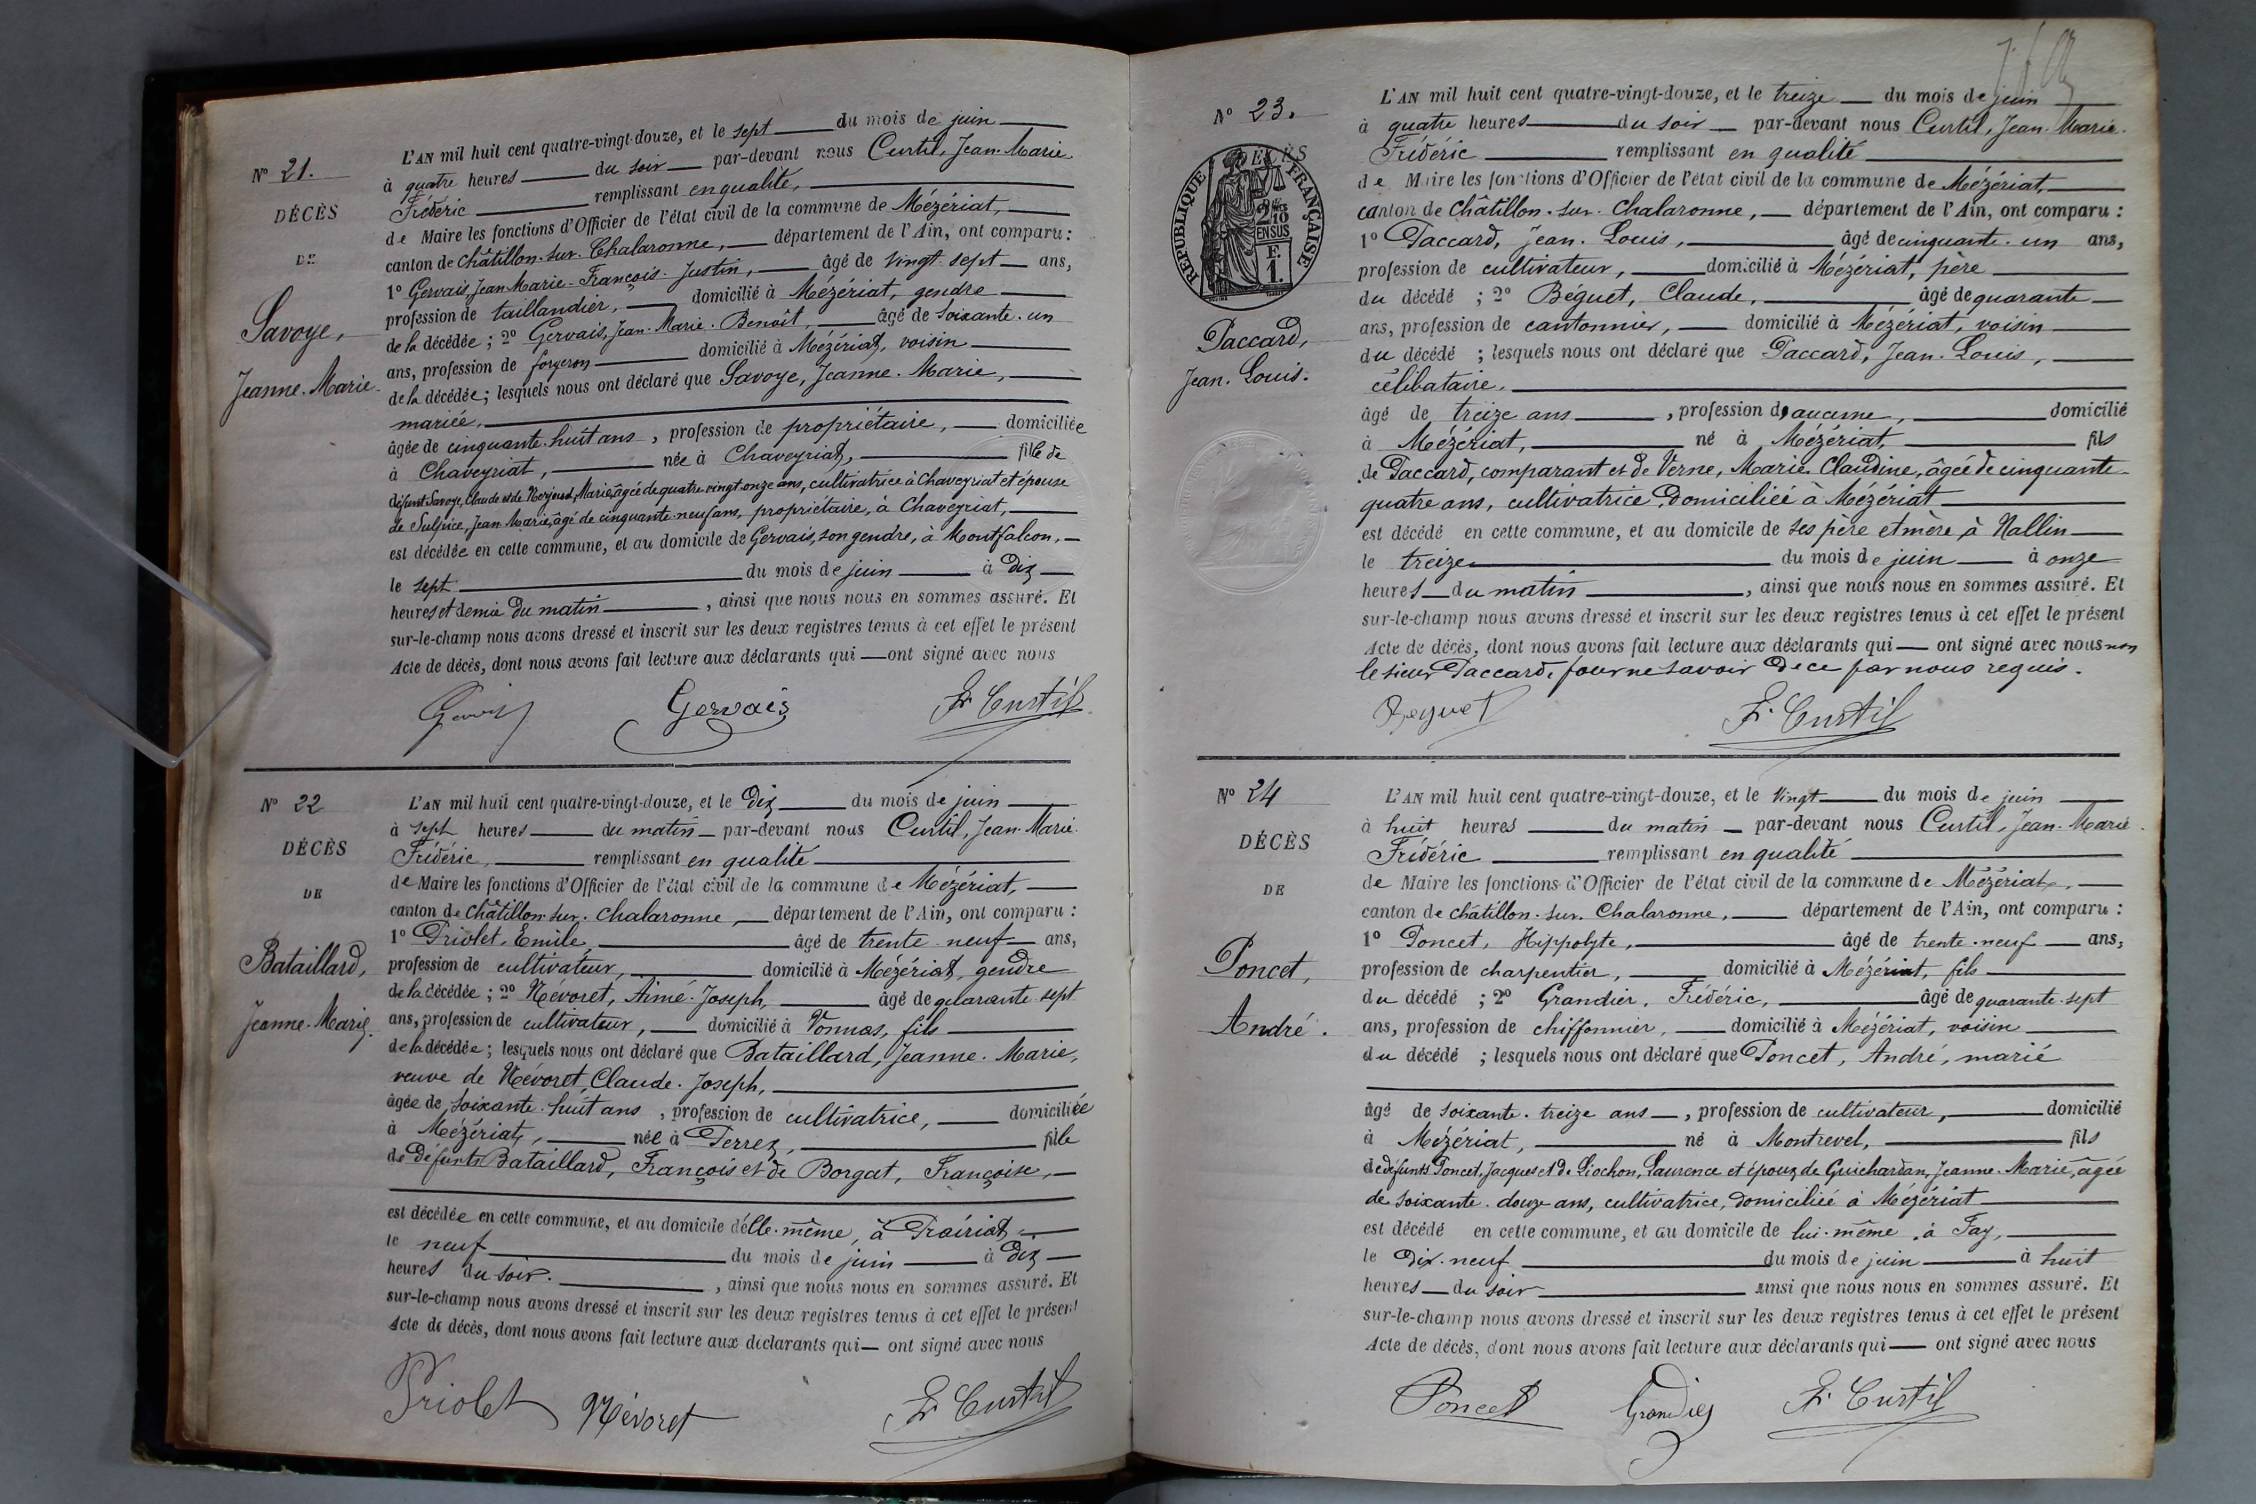 N° 21.
DÉCÈS
DE
Savoye,
Jeanne-Marie
L'AN mil huit cent quatre-vingt-douze, et le sept du mois de juin
à quatre heures du soir par-devant nous Curtil, Jean-Marie
Frédéric remplissant en qualité,
de Maire les fonctions d'Officier de l'état civil de la commune de Mézériat,
canton de Châtillon-sur-Chalaronne, département de l'Ain, ont comparu :
1° Gervais Jean Marie-François-Justin, âgé de vingt-sept ans,
profession de taillandier, domicilié à Mézériat, gendre
de la décédée ; 2° Gervais, Jean-Marie-Benoît, âgé de soixante-un
ans, profession de forgeron domicilié à Mézériat, voisin
de la décédée ; lesquels nous ont déclaré que Savoye, Jeanne-Marie,
mariée,
âgée de cinquante-huit ans, profession de propriétaire, domiciliée
à Chaveyriat, née à Chaveyriat, fille de
défunt Savoye, Claude et de Marie, âgée de quatre-vingt-onze ans, cultivatrice à Chaveyriat et épouse
de Sulpice, Jean-Marie, âgé de cinquante-neuf ans, propriétaire, à Chaveyriat,
est décédée en cette commune, et au domicile de Gervais, son gendre, à Montfalcon,
le sept du mois de juin à dix
heures et demie du matin, ainsi que nous nous en sommes assuré. Et
sur-le-champ nous avons dressé et inscrit sur les deux registres tenus à cet effet le présent
Acte de décès, dont nous avons fait lecture aux déclarants qui ont signé avec nous
Gervais Fr. Curtil
N° 22
DÉCÈS
DE
Bataillard,
Jeanne-Marie.
L'AN mil huit cent quatre-vingt-douze, et le dix du mois de juin
à sept heures du matin par-devant nous Curtil, Jean-Marie
Frédéric, remplissant en qualité
de Maire les fonctions d'Officier de l'état civil de la commune de Mézériat,
canton de Châtillon-sur-Chalaronne, département de l'Ain, ont comparu :
1° Priolet, Emile, âgé de trente-neuf ans,
profession de cultivateur, domicilié à Mézériat, gendre
de la décédée ; 2° Névoret, Aimé-Joseph, âgé de quarante-sept
ans, profession de cultivateur, domicilié à Vonnas, fils
de la décédée ; lesquels nous ont déclaré que Bataillard, Jeanne-Marie,
veuve de Névoret, Claude-Joseph,
âgée de soixante-huit ans, profession de cultivatrice, domiciliée
à Mézériat, née à Perrex, fille
de défunts Bataillard, François et de Borgat, Françoise,
est décédée en cette commune, et au domicile d'elle-même, à Prairiat,
le neuf du mois de juin à dix
heures du soir, ainsi que nous nous en sommes assuré. Et
sur-le-champ nous avons dressé et inscrit sur les deux registres tenus à cet effet le présent
Acte de décès, dont nous avons fait lecture aux déclarants qui ont signé avec nous
Priolet Névoret Fr. Curtil
N° 23.
DÉCÈS
RÉPUBLIQUE FRANÇAISE
2/10
EN SUS
F.
1.
Paccard,
Jean-Louis.
L'AN mil huit cent quatre-vingt-douze, et le treize du mois de juin
à quatre heures du soir par-devant nous Curtil, Jean-Marie-
Frédéric remplissant en qualité
de Maire les fonctions d'Officier de l'état civil de la commune de Mézériat,
canton de Châtillon-sur-Chalaronne, département de l'Ain, ont comparu :
1° Paccard, Jean-Louis, âgé de cinquante-un ans,
profession de cultivateur, domicilié à Mézériat, père
du décédé ; 2° Béguet, Claude, âgé de quarante
ans, profession de cantonnier, domicilié à Mézériat, voisin
du décédé ; lesquels nous ont déclaré que Paccard, Jean-Louis,
célibataire,
âgé de treize ans, profession d'aucune, domicilié
à Mézériat, né à Mézériat, fils
de Paccard, comparant et de Verne, Marie-Claudine, âgée de cinquante-
quatre ans, cultivatrice domiciliée à Mézériat
est décédé en cette commune, et au domicile de ses père et mère, à Nallin
le treize du mois de juin à onze
heures du matin, ainsi que nous nous en sommes assuré. Et
sur-le-champ nous avons dressé et inscrit sur les deux registres tenus à cet effet le présent
Acte de décès, dont nous avons fait lecture aux déclarants qui ont signé avec nous non
le sieur Paccard, pour ne savoir de ce par nous requis.
Beguet Fr. Curtil
N° 24
DÉCÈS
DE
Poncet,
André.
L'AN mil huit cent quatre-vingt-douze, et le vingt du mois de juin
à huit heures du matin par-devant nous Curtil, Jean-Marie-
Frédéric remplissant en qualité
de Maire les fonctions d'Officier de l'état civil de la commune de Mézériat,
canton de Châtillon-sur-Chalaronne, département de l'Ain, ont comparu :
1° Poncet, Hippolyte, âgé de trente-neuf ans,
profession de charpentier, domicilié à Mézériat, fils
du décédé ; 2° Grandier, Frédéric, âgé de quarante-sept
ans, profession de chiffonnier, domicilié à Mézériat, voisin
du décédé ; lesquels nous ont déclaré que Poncet, André, marié
âgé de soixante-treize ans, profession de cultivateur, domicilié
à Mézériat, né à Montrevel, fils
de défunts Poncet, Jacques et de Piochon, Laurence et époux de Guichardan, Jeanne-Marie, âgée
de soixante-douze ans, cultivatrice, domiciliée à Mézériat
est décédé en cette commune, et au domicile de lui-même, à Fay,
le dix-neuf du mois de juin à huit
heures du soir ainsi que nous nous en sommes assuré. Et
sur-le-champ nous avons dressé et inscrit sur les deux registres tenus à cet effet le présent
Acte de décès, dont nous avons fait lecture aux déclarants qui ont signé avec nous
Poncet Grandier Fr. Curtil